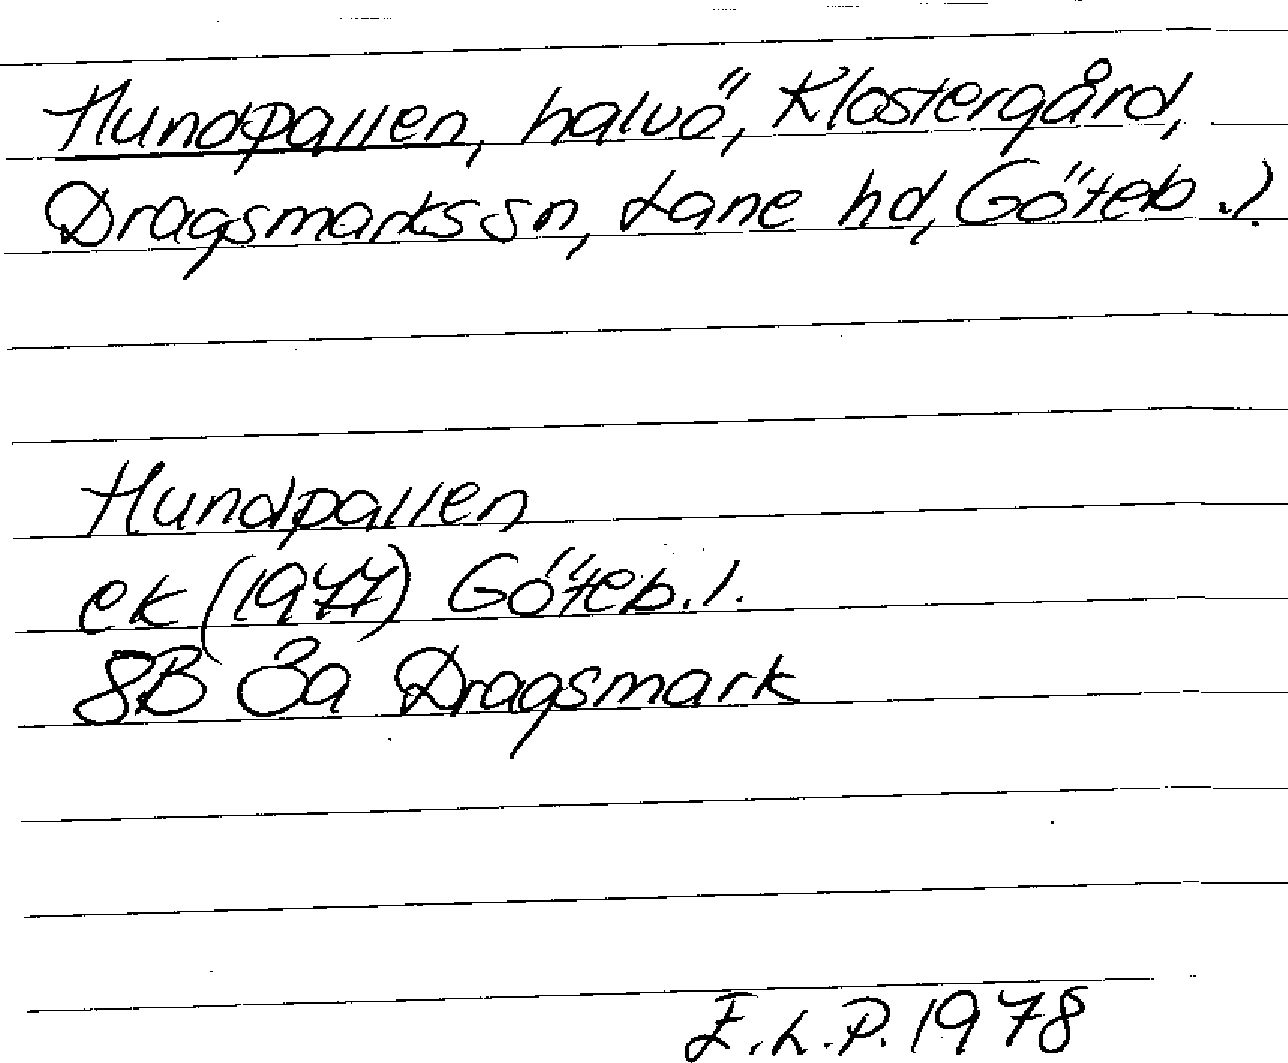 Hundpallen, halvö, Klostergård,
Dragsmarks sn, Lane hd, Göteb. l.
Hundpallen
ek (1977) Göteb. l.
8B 3a Dragsmark
E.L.P. 1978